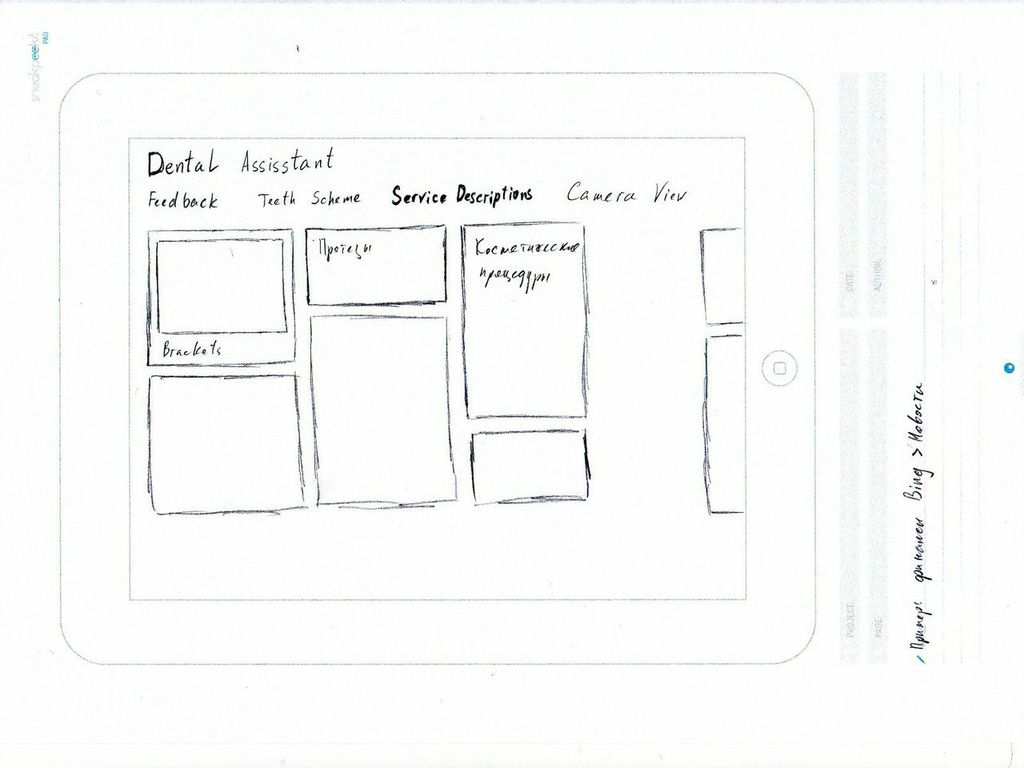 sneakpeekit
PAD
Dental Assisstant
Feedback Teeth Scheme Service Descriptions Camera View
Brackets
Протезы
Косметические
процедуры
DATE
AUTHOR
PROJECT
PAGE
Пример: финансы Bing > Новости